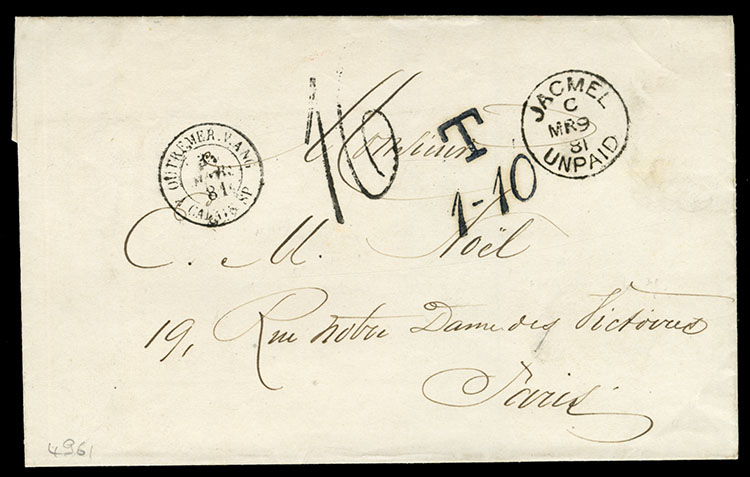 JACMEL
C
MR 9
81
UNPAID
OUTREMER. V. ANG
MARS
81
CALAIS
16
T
1-10
Monsieur
C. M. Noël
19, Rue notre Dame des Victoires
Paris
4961